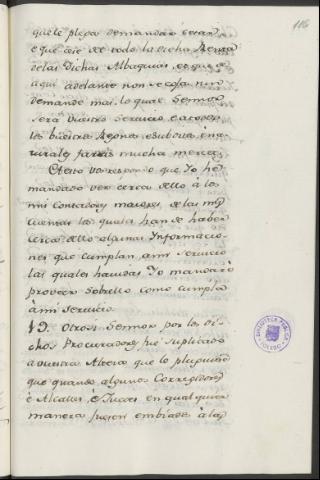 116
que le plega demandar
e que assi de todo la dicha Renta
de las Dichas Albaquias, et que de
aqui adelante non se coxa, nin
demande mas, lo qual Señor
sera vuestro servicio, e a todos
los vuestros Reynos e subditos e na-
turales fares mucha merced.
A esto vos respondo que Yo he
mandado ver cerca dello à los
mis Contadores maiores, de las mis
cuentas los quales han de haber
cerca dello algunas Informacio-
nes que cumplan à mi servicio
las quales havidas Yo mandarè
proveer sobrello como cumpla
à mi servicio.
19. Otrosi Señor por los di-
chos Procuradores fue suplicado
à vuestra Alteza que le pluguiese
que quando algunos Corregidores
è Alcaldes, è Jueces en qualquier
manera fuesen embiados à las
BIBLIOTECA PUBLICA
TOLEDO